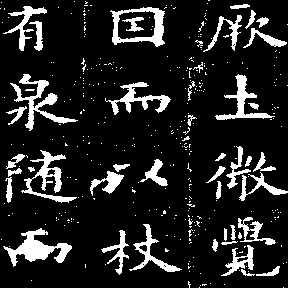 厥土微覺
因而以杖
有泉随而